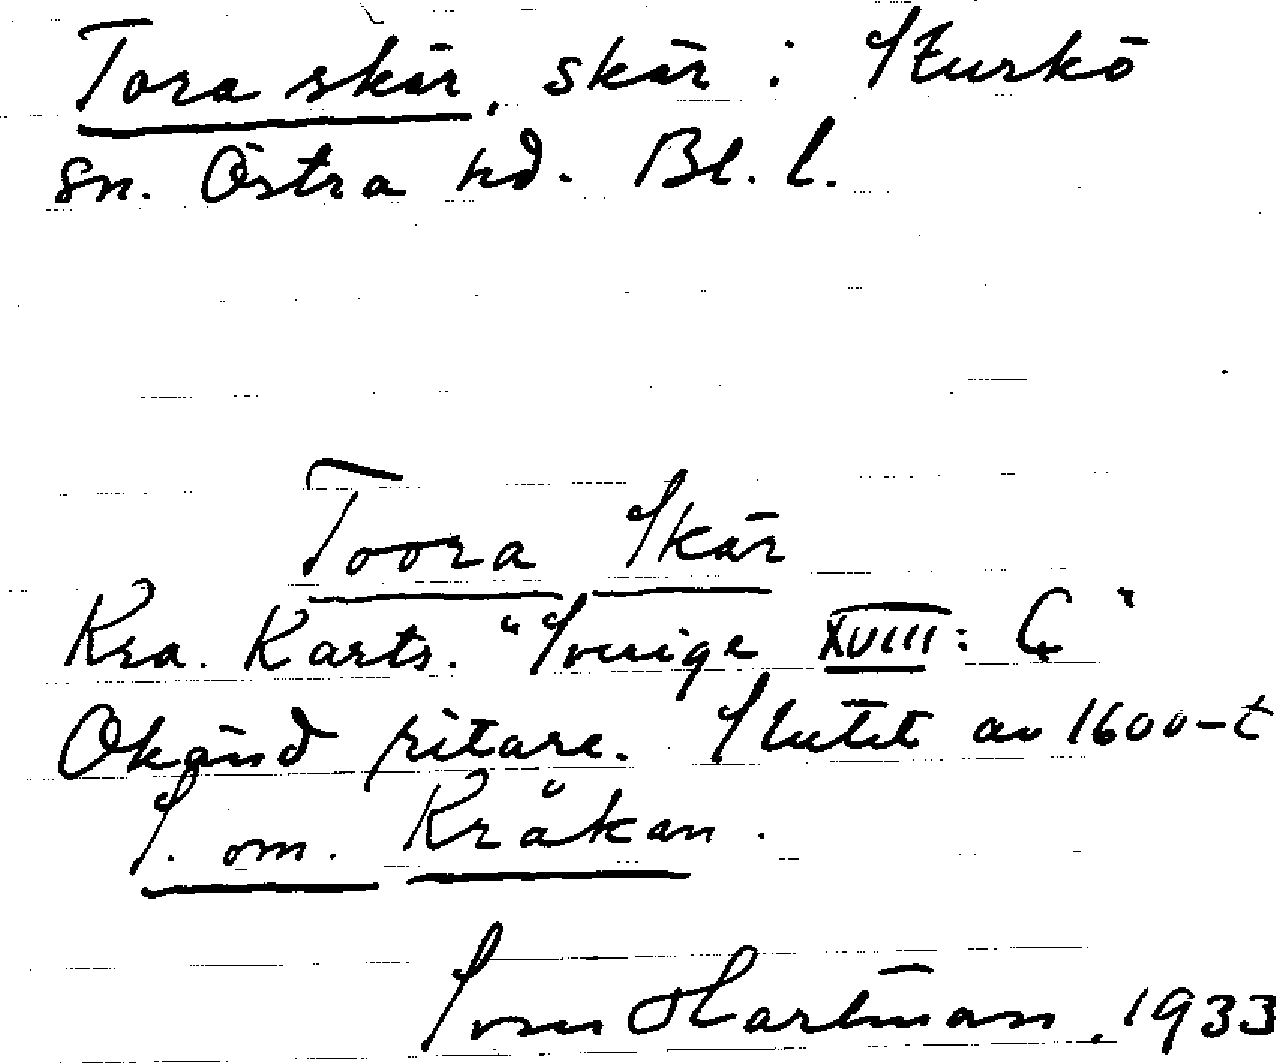 Tora skär, skär i Sturkö
sn. Östra hd. Bl. l.
Toora Skär
Kra. Karts. "Sverige XVIII: C"
Okänd ritare. Slutet av 1600-t
S. om. Kråkan.
Sven Hartman, 1933